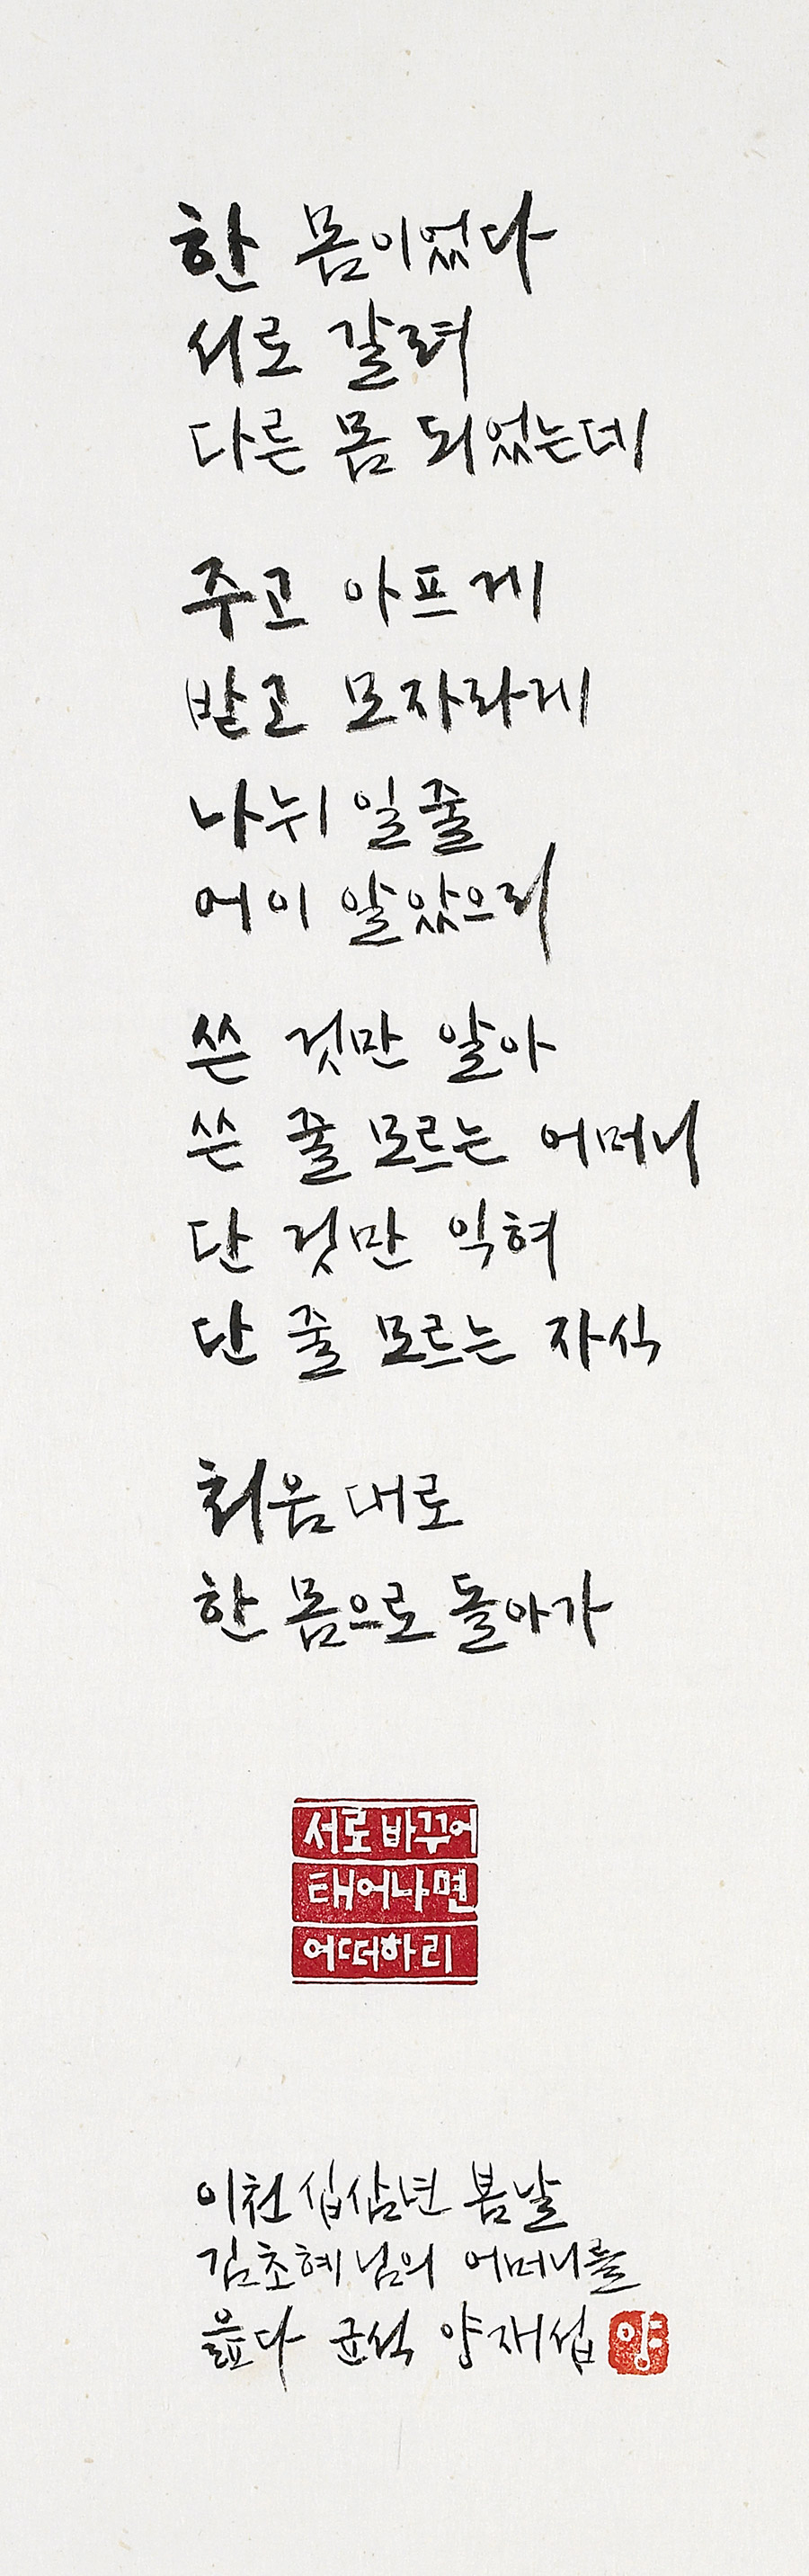 한 몸이었다
서로 갈려
다른 몸 되었는데
주고 아프게
받고 모자라게
나뉘일줄
어이 알았으리
쓴 것만 알아
쓴 줄 모르는 어머니
단 것만 익혀
단 줄 모르는 자식
처음대로
한 몸으로 돌아가
서로바꾸어
태어나면
어떠하리
이천십삼년 봄날
김초혜님의 어머니를
읊다 균석 양재섭 양